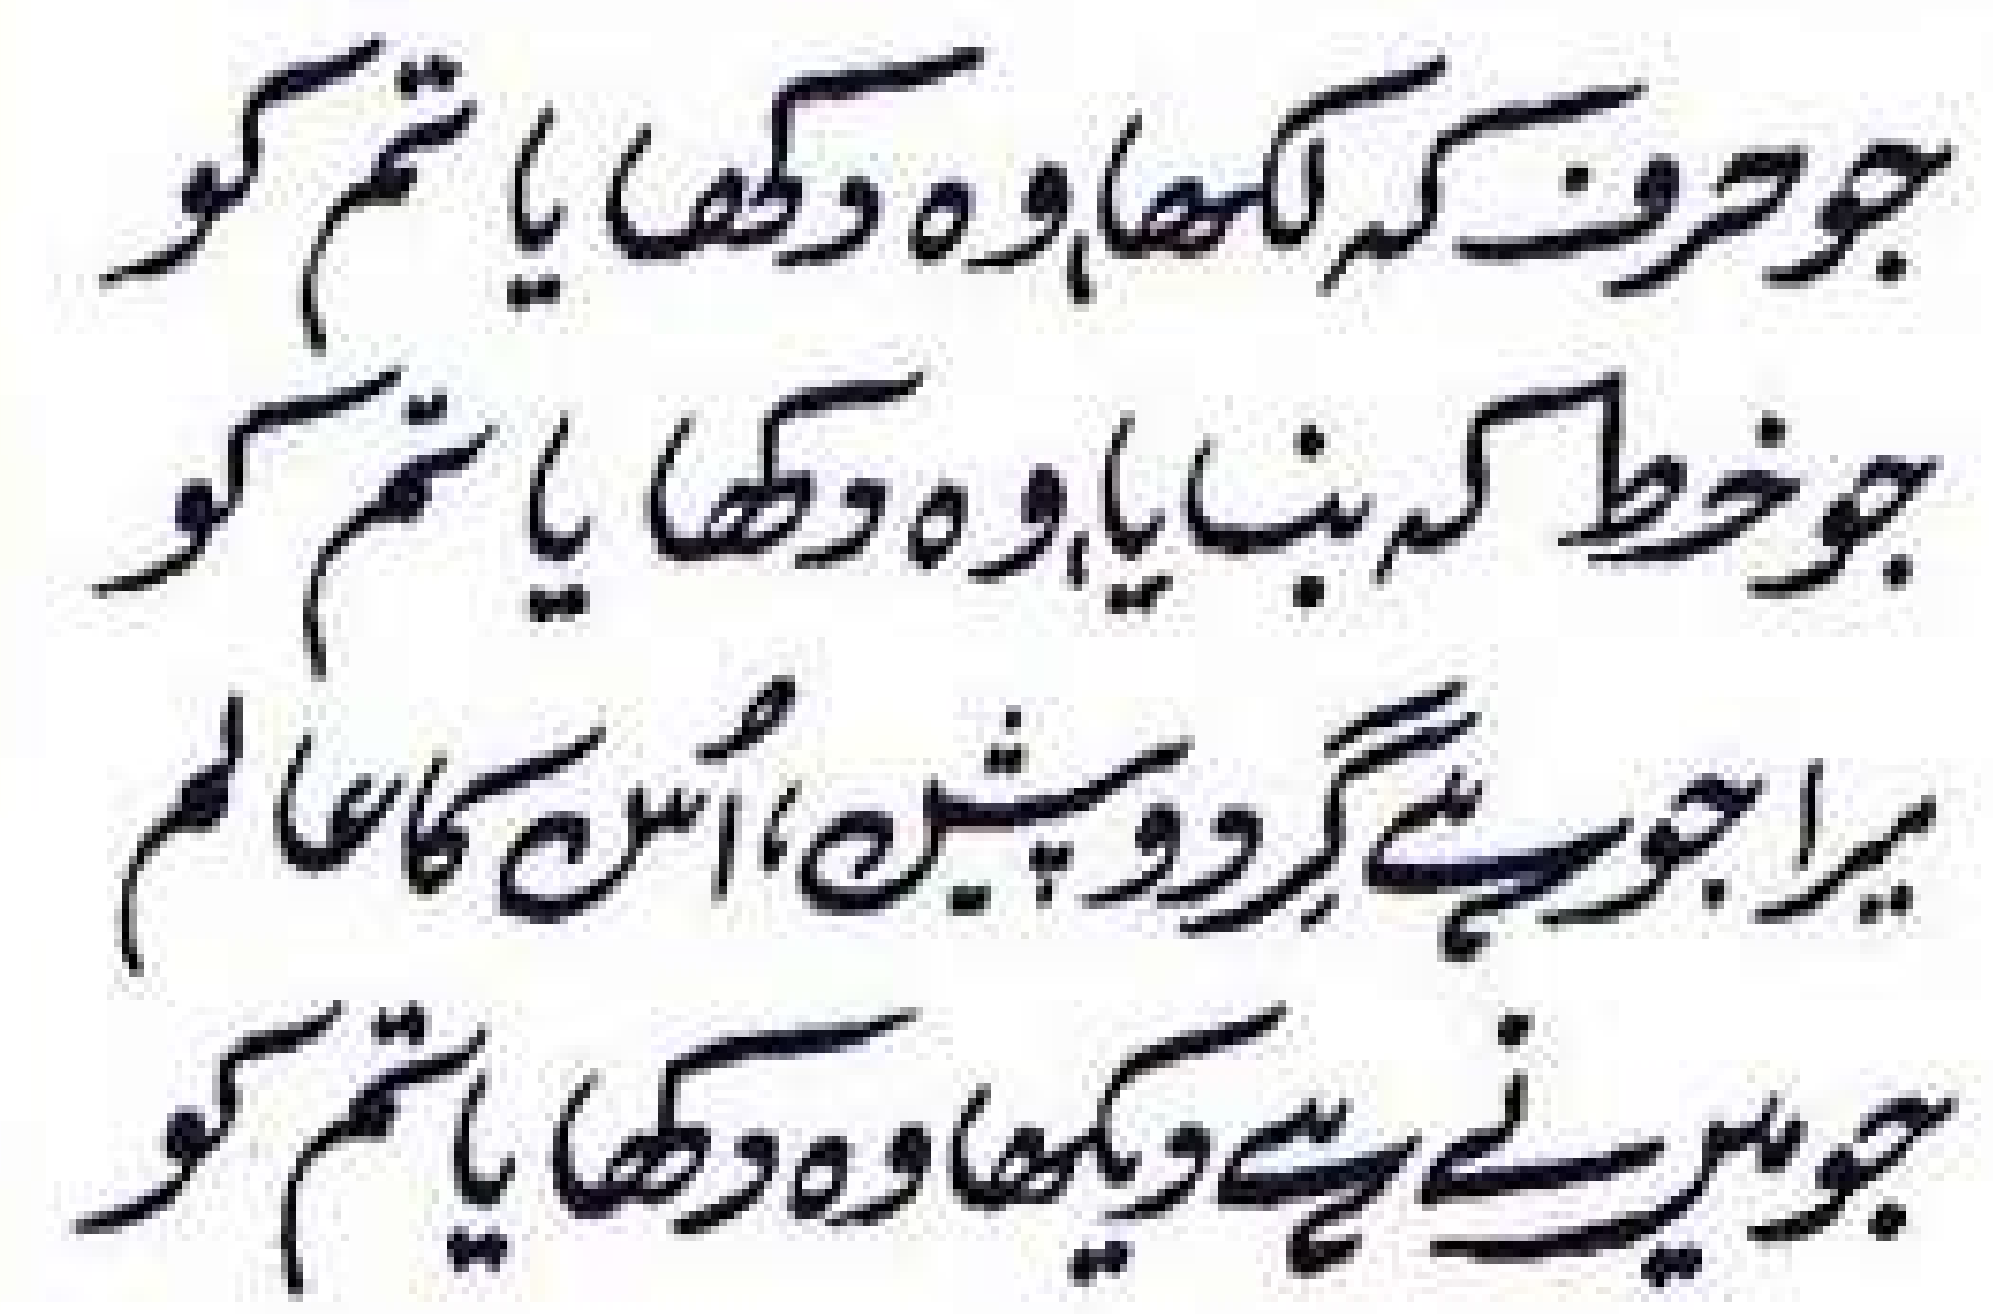 جو حرف کہ لکھا، وہ دکھایا تم کو
جو خط کہ بنایا، وہ دکھایا تم کو
میرا جو ہے گردوپیش، اُس کا عالم
جو میں نے ہے دیکھا وہ دکھایا تم کو